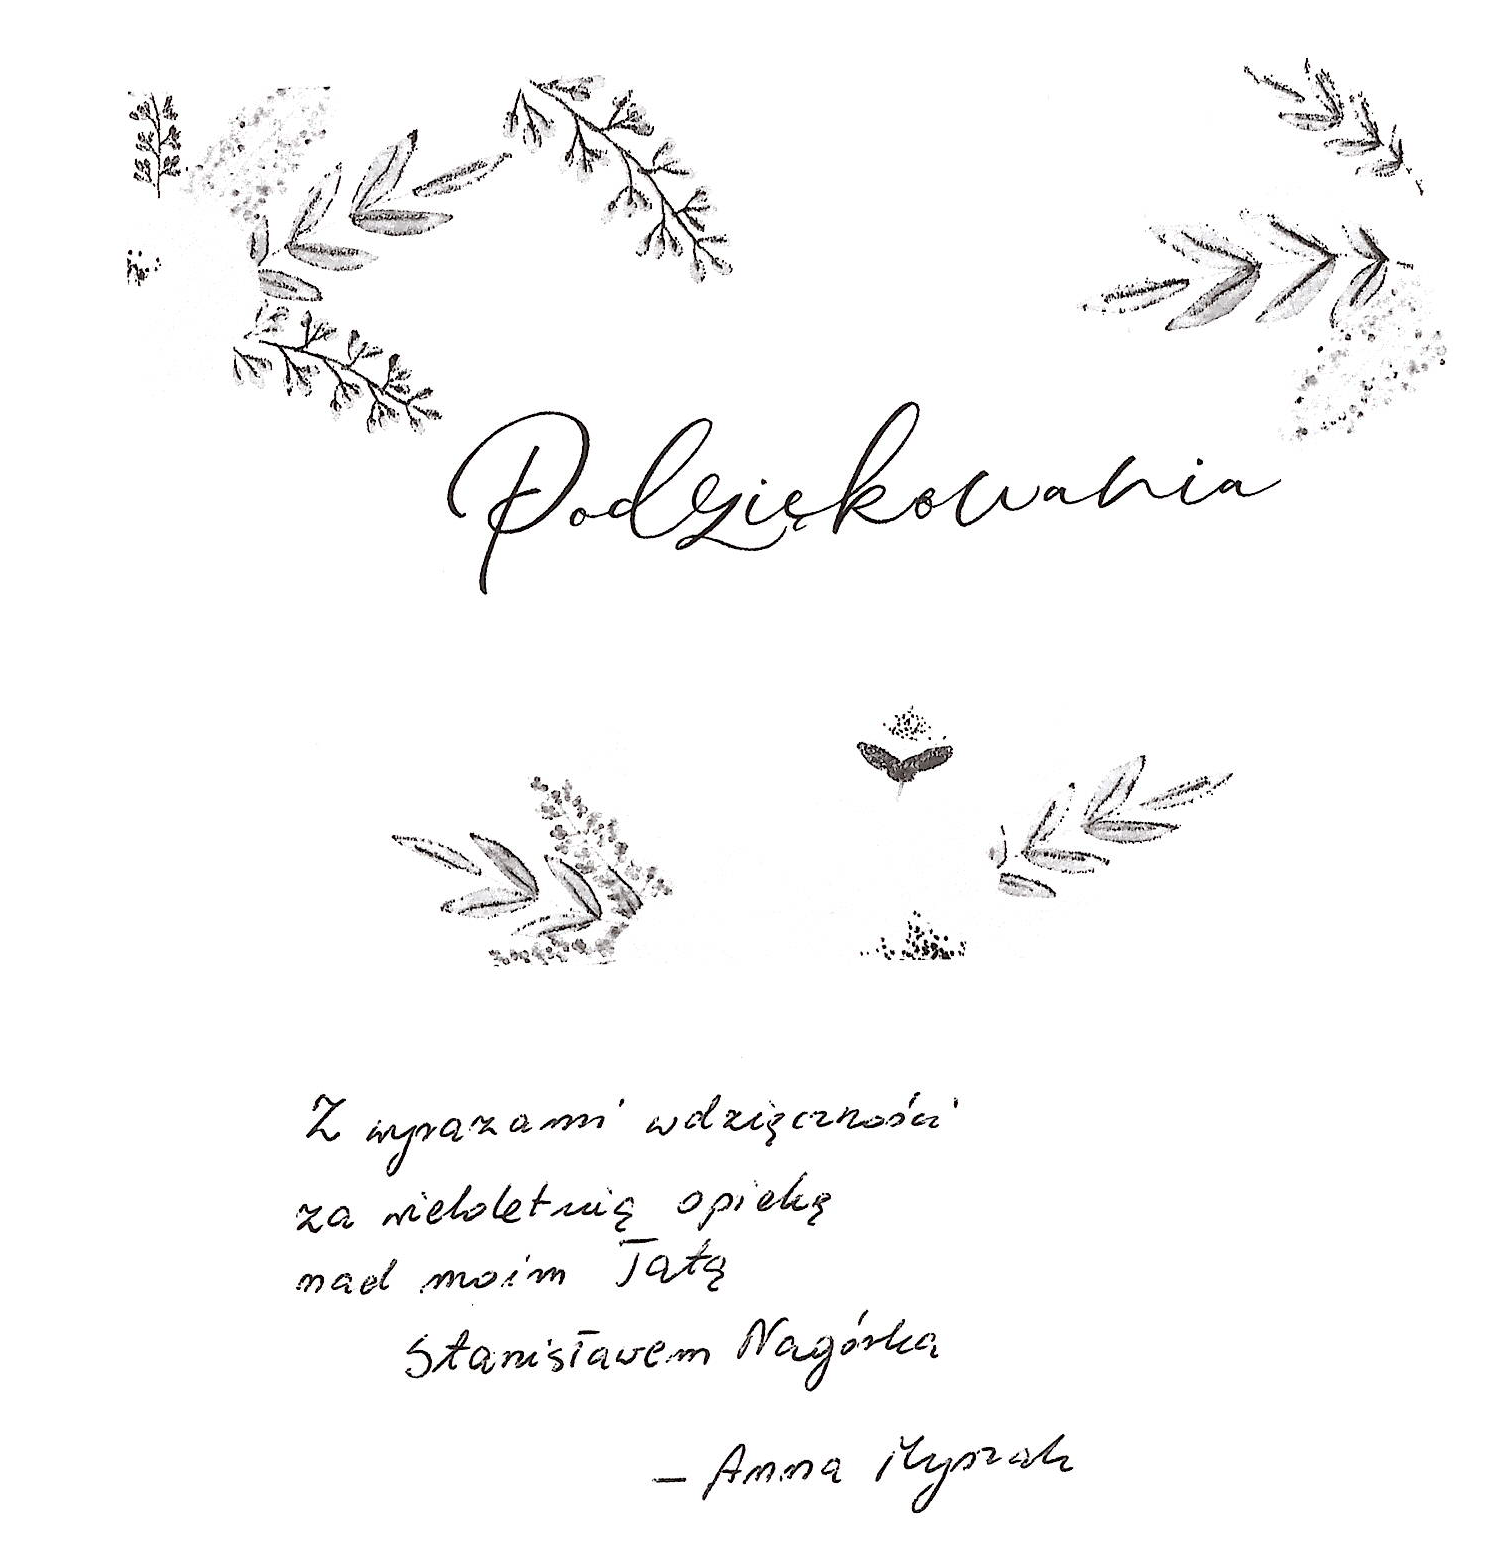 Podziękowania
Z wyrazami wdzięczności
za wieloletnią opiekę
nad moim Tatą
Stanisławem Nagórka
– Anna